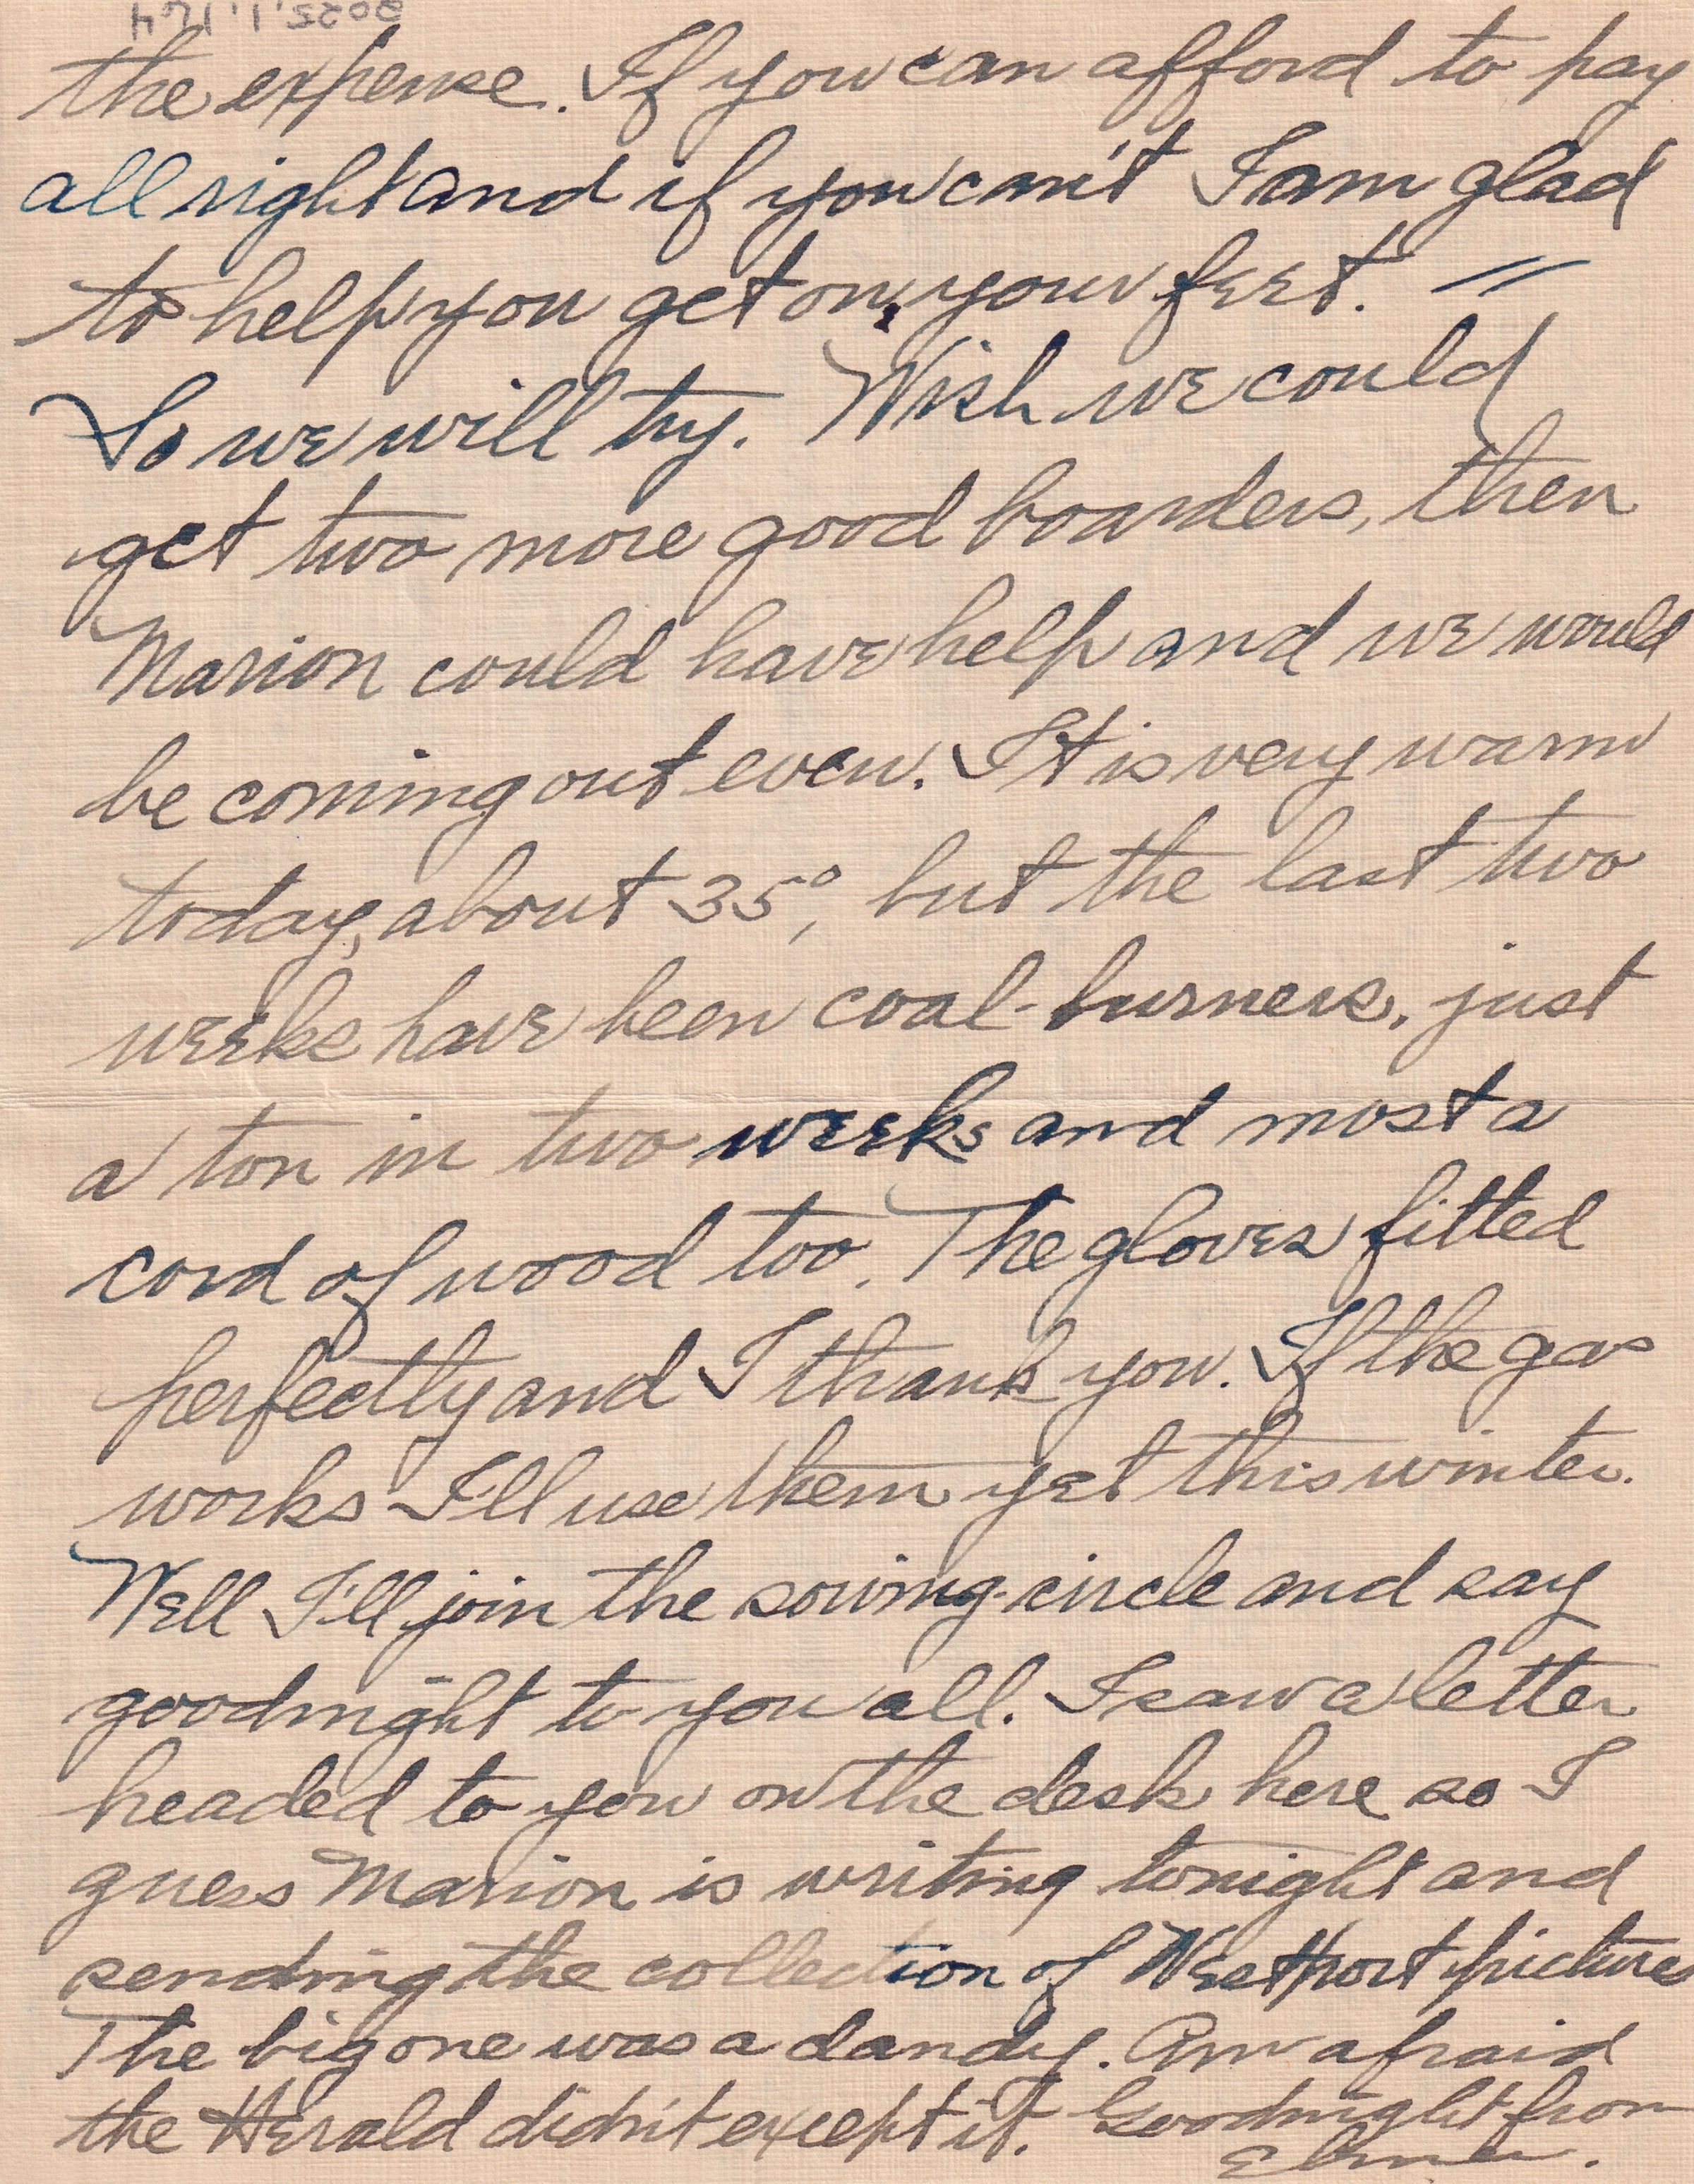 2025.1.164
the expense. If you can afford to pay
all right and if you can't I am glad
to help you get on your feet. //
So we will try. Wish we could
get two more good boarders, then
Marion could have help and we would
be coming out even. It is very warm
today, about 35°, but the last two
weeks have been coal-burners, just
a ton in two weeks and most a
cord of wood too. The gloves fitted
perfectly and I thank you. If the gas
works I'll use them yet this winter.
Well I'll join the sowing-circle and say
goodnight to you all. I saw a letter
headed to you on the desk here so I
guess Marion is writing tonight and
sending the collection of Westport pictures
The big one was a dandy. Am afraid
the Herald didn't except it. Goodnight from
Elmer.